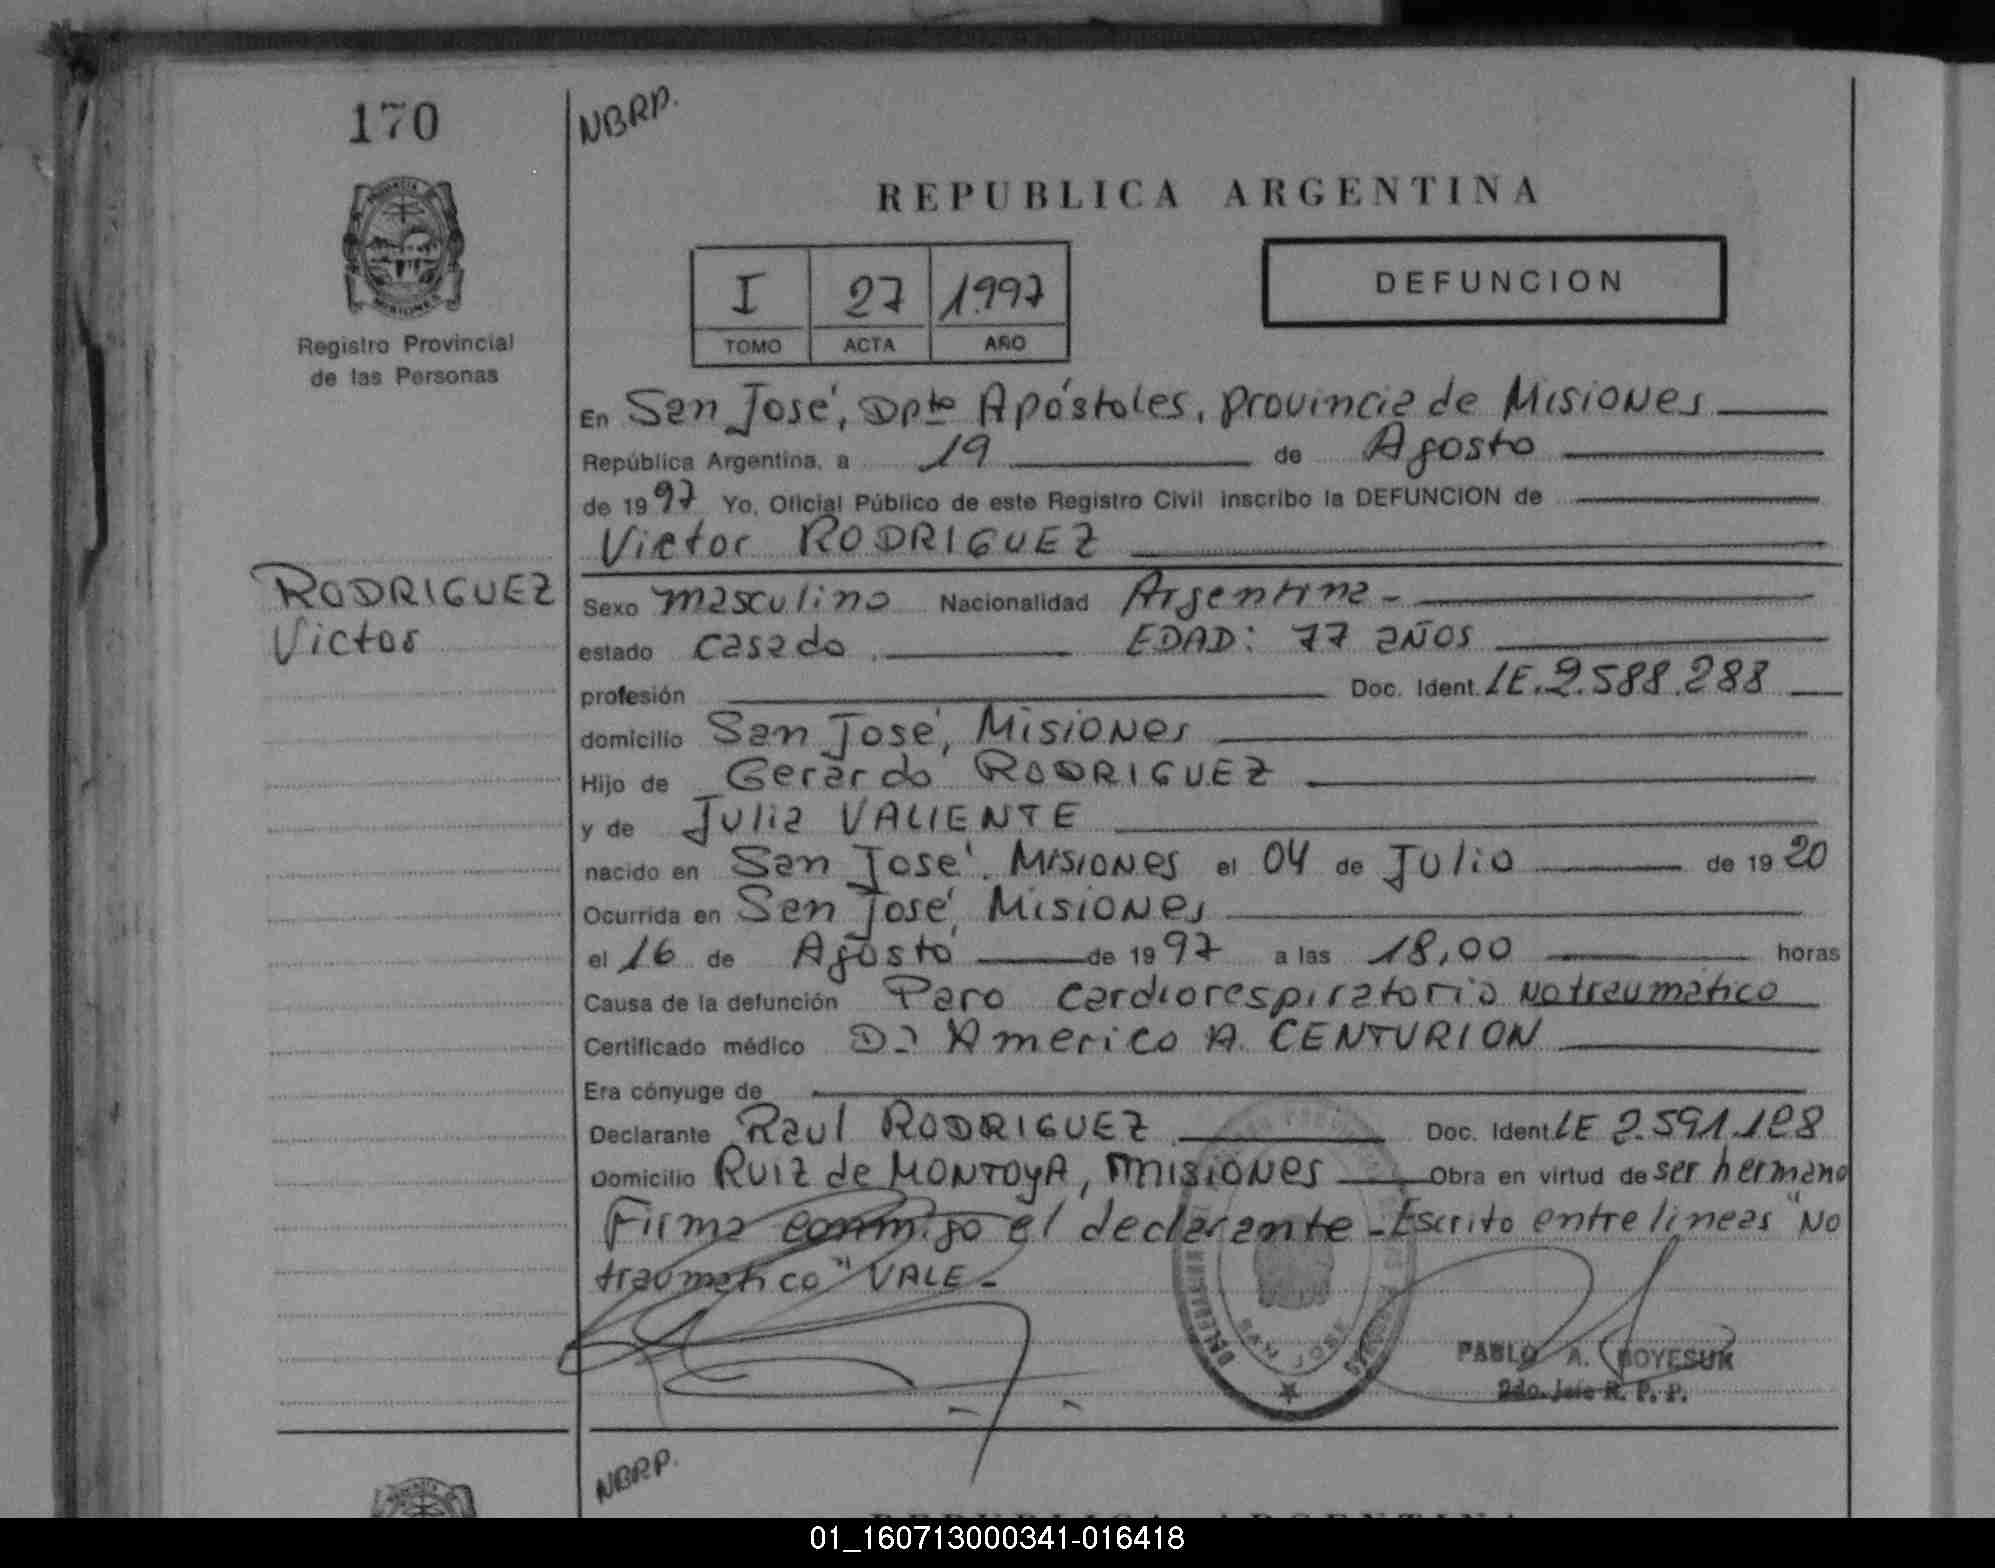 170
NBRP.
REPUBLICA ARGENTINA
I 27 1.997
TOMO ACTA AÑO
DEFUNCION
MISIONES
Registro Provincial
de las Personas
En San José, Dpto Apóstoles, provincia de Misiones
República Argentina, a 19 de Agosto
de 1997 Yo, Oficial Público de este Registro Civil inscribo la DEFUNCION de
Victor RODRIGUEZ
RODRIGUEZ
Victor
Sexo masculino Nacionalidad Argentina -
estado casado EDAD: 77 años
profesión Doc. Ident. LE.2.588.288
domicilio San José, Misiones
Hijo de Gerardo RODRIGUEZ
y de Julia VALIENTE
nacido en San José. Misiones el 04 de Julio de 1920
Ocurrida en San José, Misiones
el 16 de Agosto de 1997 a las 18,00 horas
Causa de la defunción Paro cardiorespiratorio no traumático
Certificado médico Dr Americo A. CENTURION
Era cónyuge de
Declarante Raul RODRIGUEZ Doc. Ident. LE 2.591.128
Domicilio Ruiz de Montoya, misiones Obra en virtud de ser hermano
Firma conmigo el declarante - Escrito entre lineas "No
traumatico" VALE -
SAN JOSE
PABLO A. BOYESUK
2do. Jefe R. P. P.
NBRP.
REPUBLICA ARGENTINA
01_160713000341-016418